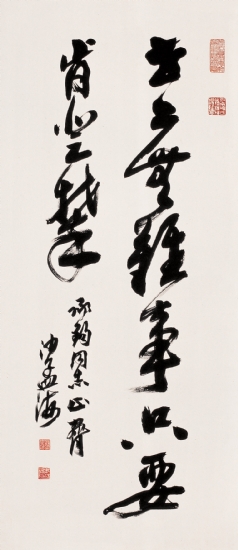 世上無難事只要
肯登攀
同志正臂
沙孟海